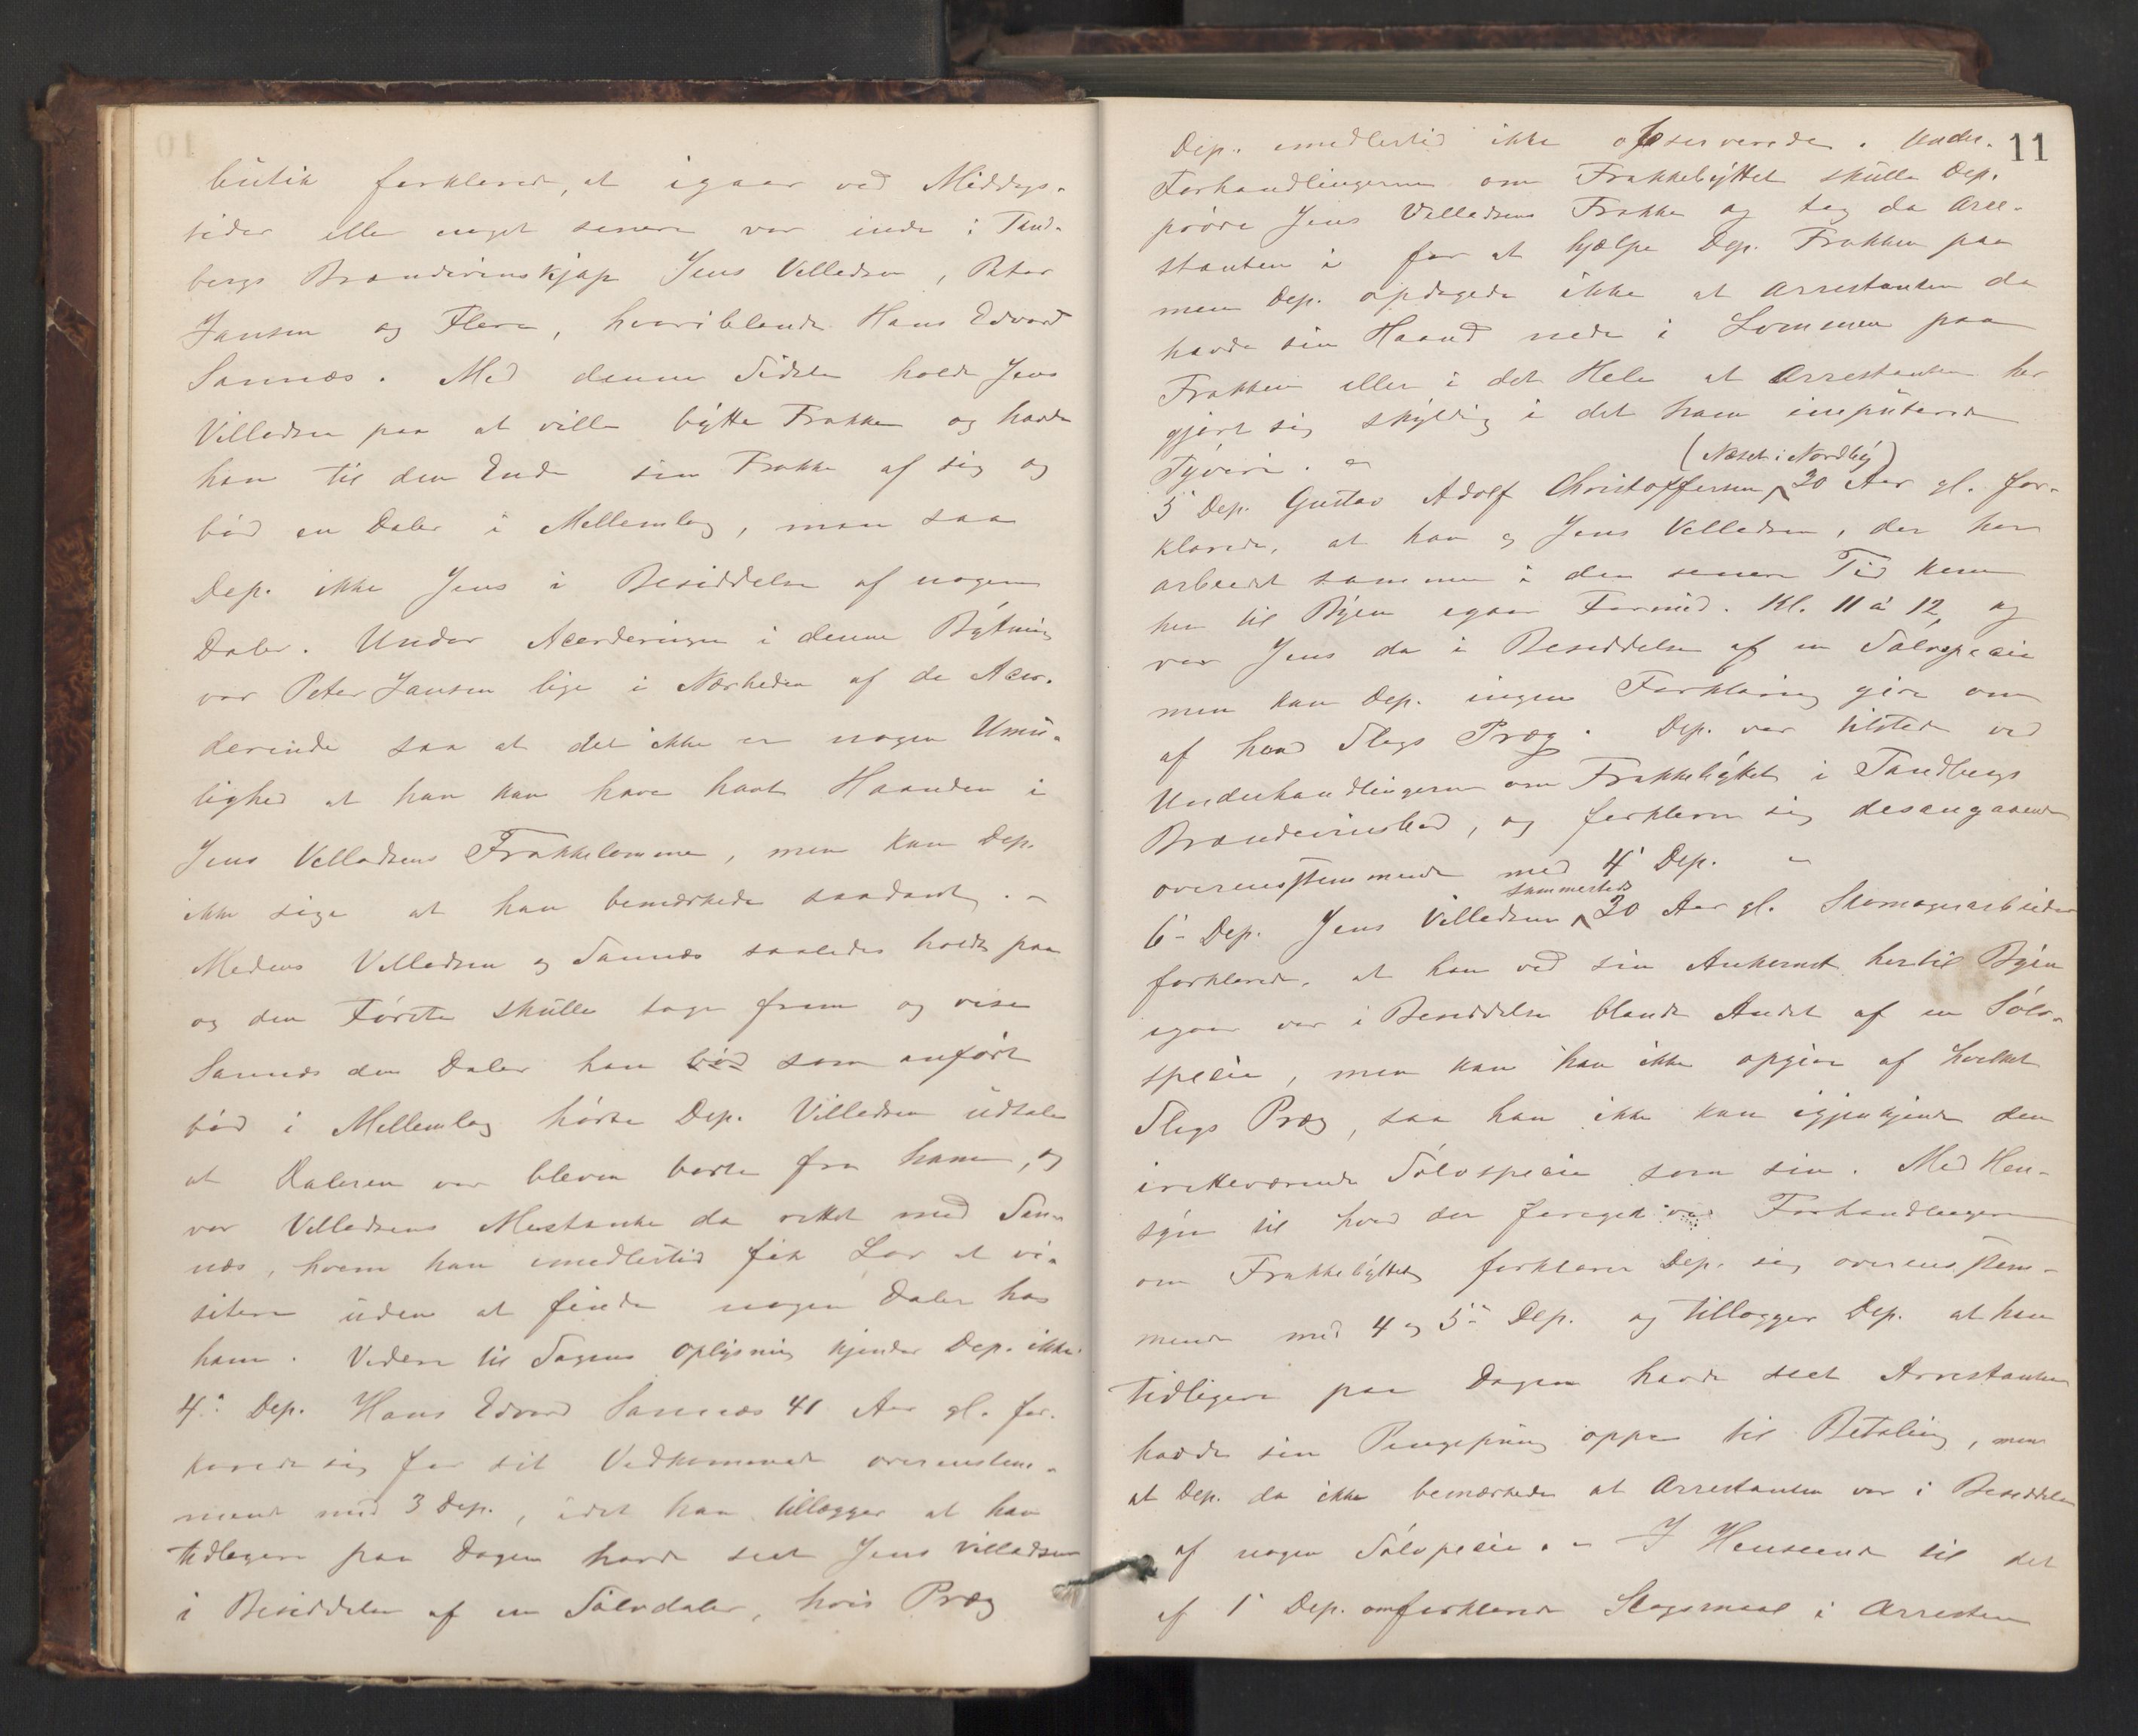 butik forklared, at igaar ved Middags-
tider eller noget senere var inde i Tand-
bergs Brændevinskjøp Jens Velledsen, Peter
Jansen og Flere, hvoriblandt Hans Edvard
Sannæs. Med denne Sidste holdt Jens
Villedsen paa at ville bytte Frakke og havde
han til den Ende sin Frakke af sig og
bød en Daler i Mellemlag, men saa
Dep. ikke Jens i Besiddelse af nogen
Daler. Under Acorderingen i denne Bytning
var Peter Jansen lige i Nærheden af de Acor-
derende saa at det ikke er nogen Umu-
lighed at han kan have havt Haanden i
Jens Velledsens Frakkelomme, men kan Dep.
ikke sige at han bemærkede saadant. -
Medens Velledsen og Sannæs saaledes holdt paa
og den Første skulle tage frem og vise
Sannæs den Daler han bød som anført
bød i Mellemlag hørte Dep. Villedsen udtale
at Daleren var bleven borte fra ham, og
var Velledsens Mistanke da rettet mod San-
næs, hvem han imedlertid fik Lov at vi-
sitere uden at finde nogen Daler hos
ham. Videre til Sagens Oplysning kjender Dep. ikke.
4de Dep. Hans Edvard Sannæs 41 Aar gl. for-
klarede sig for sit Vedkommende overenstem-
mende med 3 Dep., idet han tillægger at han
tidligere paa Dagen havde seet Jens Villedsen
i Besiddelse af en Sølvdaler, hvis Præg
11
Dep. imedlertid ikke observerede. Under-
Forhandlingerne om Frakkebyttet skulle Dep.
prøve Jens Velledsens Frakke og tog da Arre-
stanten i for at hjælpe Dep. Frakken paa
men Dep. opdagede ikke at Arrestanten da
havde sin Haand nede i Lommen paa
Frakken eller i det Hele at Arrestanten har
gjort sig skyldig i det ham imputerede
Tyveri. -
(Næset i Nordby)
5 Dep. Gustav Adolf Christoffersen 30 Aar gl. for-
klarede, at han og Jens Velledsen, der har
arbeidet sammen i den senere Tid kom
hen til Byen igaar Formid. Kl. 11 à 12, og
var Jens da i Besiddelse af en Sølvspecie
men kan Dep. ingen Forklaring give om
af hvad Slags Præg. Dep. var tilstede ved
Underhandlingerne om Frakkebyttet i Tandbergs
Brændevinsbod, og forklarer sig desangaaende
overensstemmende med 4de Dep. -
sammesteds
6- Dep. Jens Villedsen 30 Aar gl. Skomagerarbeider
forklarede, at han ved sin Ankomst hertil Byen
igaar var i Besiddelse blandt Andet af en Sølv-
specie, men kan han ikke opgive af hvilket
Slags Præg, saa han ikke kan igjenkjende den
iretteværende Sølvspecie som sin. Med Hen-
syn til hvad der foregik ved Forhandlingerne
om Frakkebyttet forklarer Dep. sig overensstem-
mende med 4 og 5- Dep. og tillægger Dep. at han
tidligere paa Dagen havde seet Arrestanten
havde sin Pengepung oppe til Betaling, men
at Dep. da ikke bemærkede at Arrestanten var i Besiddelse
af nogen Sølvspecie. - I Henseende til det
af 1- Dep. omforklarede Slagsmaal i Arresten